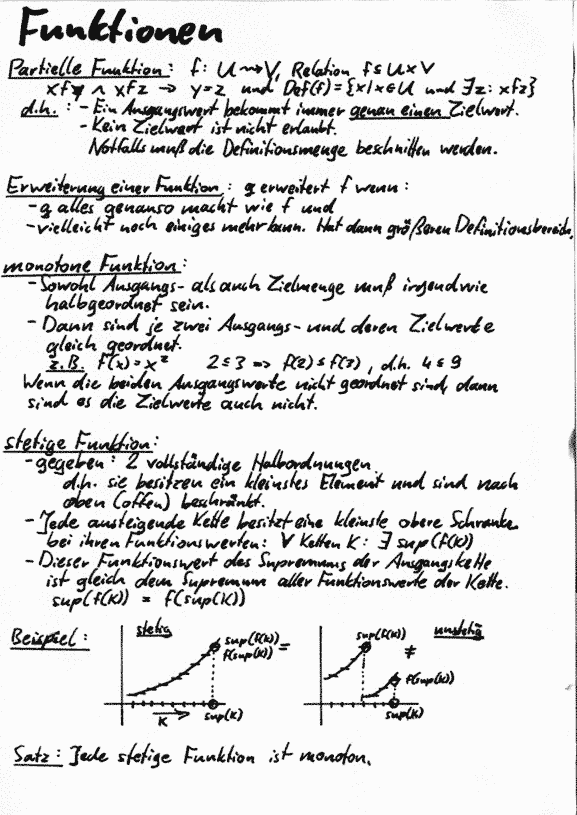 Funktionen
Partielle Funktion: f: U ⇝ V, Relation f ⊆ U x V
xfy ∧ xfz → y=z und Def(f) = {x | x ∈ U und ∃z: xfz}
d.h.: - Ein Ausgangswert bekommt immer genau einen Zielwert.
- Kein Zielwert ist nicht erlaubt.
Notfalls muß die Definitionsmenge beschnitten werden.
Erweiterung einer Funktion: g erweitert f wenn:
- g alles genauso macht wie f und
- vielleicht noch einiges mehr kann. Hat dann größeren Definitionsbereich.
monotone Funktion:
- Sowohl Ausgangs- als auch Zielmenge muß irgendwie
halbgeordnet sein.
- Dann sind je zwei Ausgangs- und deren Zielwerte
gleich geordnet.
z.B. f(x) = x² 2 ≤ 3 => f(2) ≤ f(3), d.h. 4 ≤ 9
Wenn die beiden Ausgangswerte nicht geordnet sind, dann
sind es die Zielwerte auch nicht.
stetige Funktion:
- gegeben: 2 vollständige Halbordnungen
d.h. sie besitzen ein kleinstes Element und sind nach
oben (offen) beschränkt.
- Jede ansteigende Kette besitzt eine kleinste obere Schranke
bei ihren Funktionswerten: ∀ Ketten K: ∃ sup(f(K))
- Dieser Funktionswert des Supremums der Ausgangskette
ist gleich dem Supremum aller Funktionswerte der Kette.
sup(f(K)) = f(sup(K))
Beispiel:
stetig
sup(f(K)) =
f(sup(K))
K
sup(K)
unstetig
sup(f(K))
≠
f(sup(K))
sup(K)
Satz: Jede stetige Funktion ist monoton.